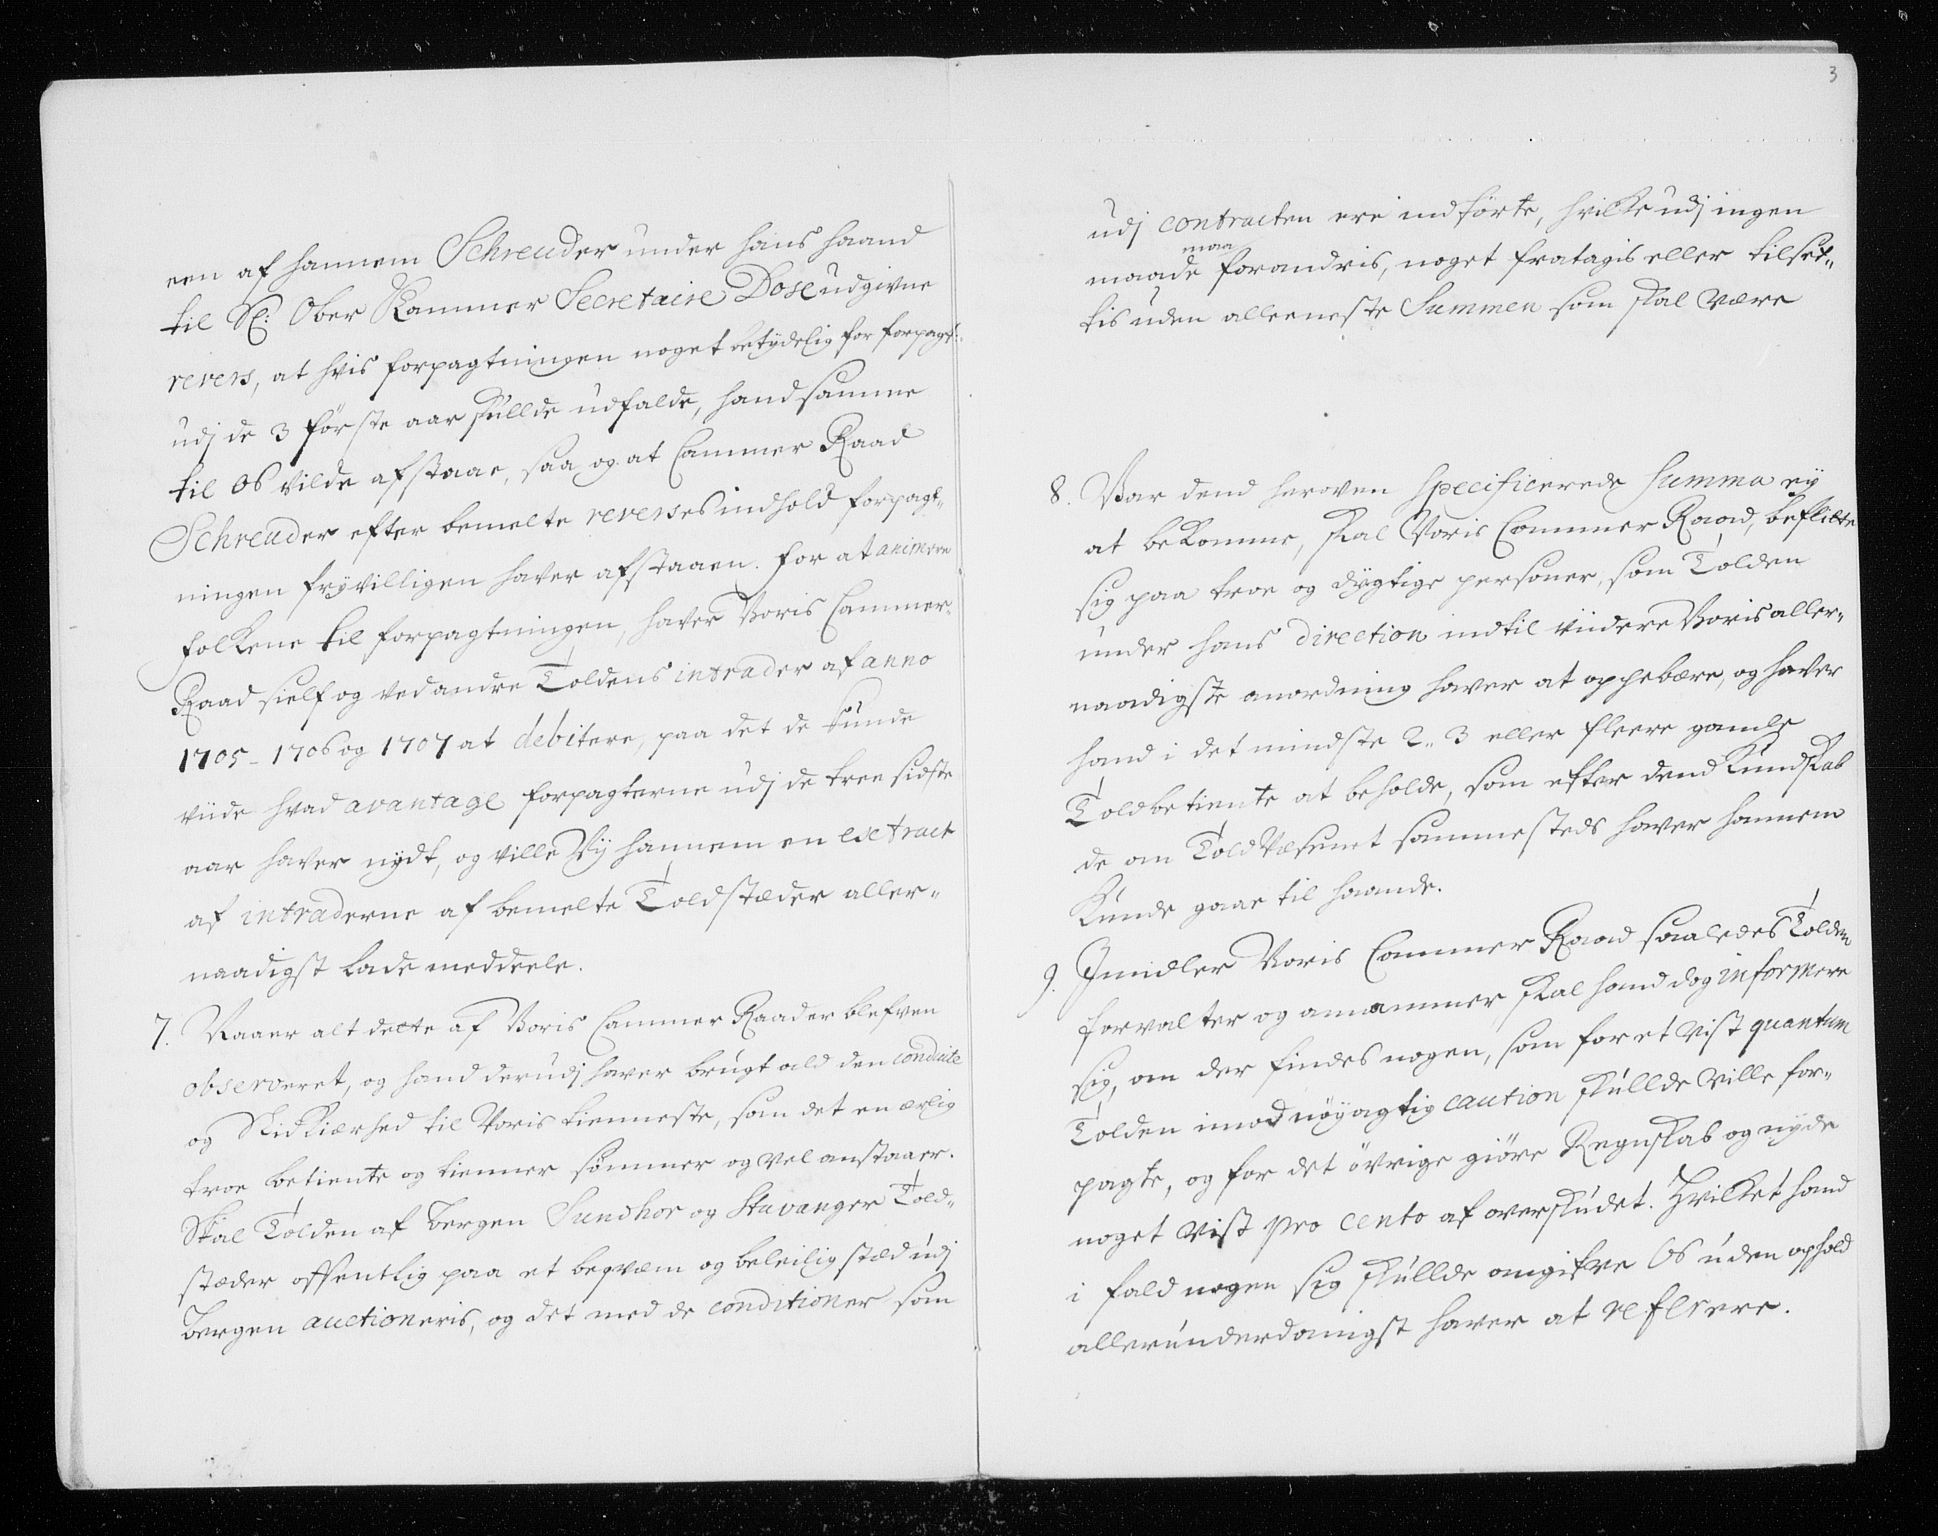 een af hannem Schreuder under hans haand
til Sl: Ober Kammer Secretaire Dose udgivne
revers, at hvis forpagtningen noget betydelig for forpagt:
udj de 3 förste aar skullde udfalde, hand samme
til Os vilde afstaae, saa og at Cammer Raad
Schreuder efter bemelte reverses indhold forpagt„
ningen fryvilligen haver afstaaen. for at animere
folkene til forpagtningen, haver Voris Cammer„
Raad sielf og ved andre Toldens intrader af anno
1705 - 1706 og 1707 at debitere, paa det de kunde
viide hvad avantage forpagterne udj de tree sidste
aar haver nydt, og ville Vy hannem en extract
af intraderne af bemelte Toldstæder aller„
naadigst lade meddeele.
7. Naaer alt dette af Voris Cammer Raad er blefven
observeret, og hand derudj haver brugt ald den conduite
og Nidkierhed til Voris tienneste, som det en ærlig
troe betiente og tienner sömmer og vel anstaaer.
Skal Tolden af Bergen Sundhor og Stavanger Told„
stæder offentlig paa et beqvem og beleilig stæd udj
Bergen auctioneris, og det med de conditioner som
3
udj contracten ere indförte, hvilke udj ingen
maa
maade forandris, noget fratagis eller tilset„
tis uden alleeneste Summen som skal være
8. Var dend heroven specificerede Summa ey
at bekomme, skal Voris Cammer Raad, beflitte
sig paa troe og dygtige personer, som Tolden
under hans direction indtil viidere Voris aller„
naadigste anordning haver at oppebære, og haver
hand i det mindste 2„ 3 eller fleere gamle
Toldbetiente at beholde, som efter dend Kundskab
de om Told Væsenet sammesteds haver hannem
Kunde gaae til haande.
9. Imidler Voris Cammer Raad saaledes Tolden
forvalter og annammer skal hand dog informere
sig, om der findes nogen, som for et vist quantum
Tolden imod nöyagtig caution skullde ville for„
pagte, og for det övrige giöre Regnskab og nyde
noget vist pro cento af overskudet. Hvilket hand
i fald nogen sig skullde angifve Os uden ophold
allerunderdanigst haver at referere.